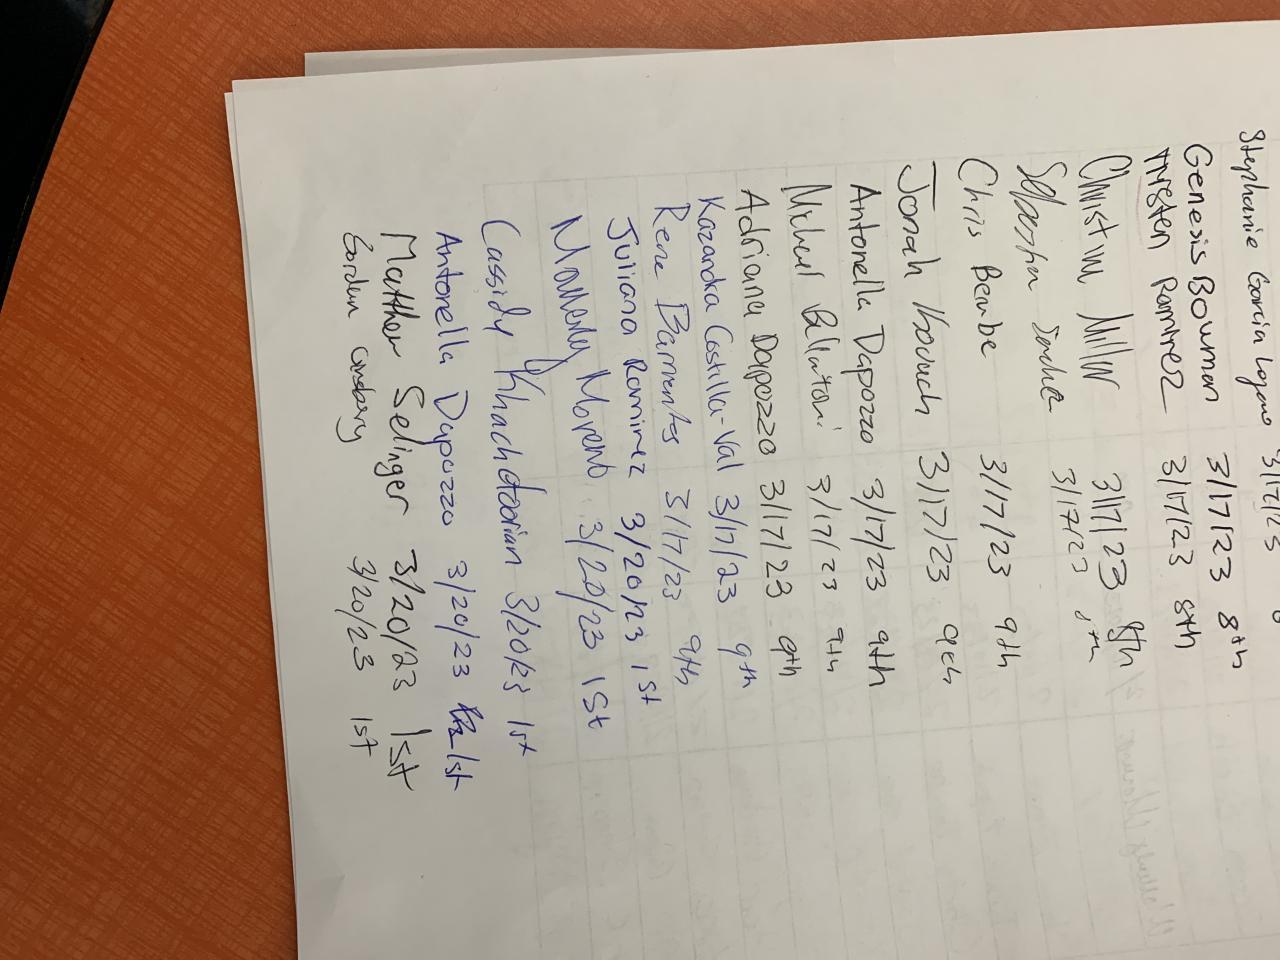 Stephanie Garcia 3/17/23
Genesis Bowman 3/17/23 8th
Tristen Ramirez 3/17/23 8th
Christian Miller 3/17/23 8th
3/17/23 8th
Chris Berube 3/17/23 9th
Jonah 3/17/23 9th
Antonella Dapozzo 3/17/23 9th
3/17/23 9th
Adriana Dapozzo 3/17/23 9th
Kazandra Castilla-Val 3/17/23 9th
Rene Barrientos 3/17/23 9th
Juliana Ramirez 3/20/23 1st
Moreno 3/20/23 1st
Cassidy Khachdoorian 3/20/23 1st
Antonella Dapozzo 3/20/23 1st
Matthew Selinger 3/20/23 1st
3/20/23 1st